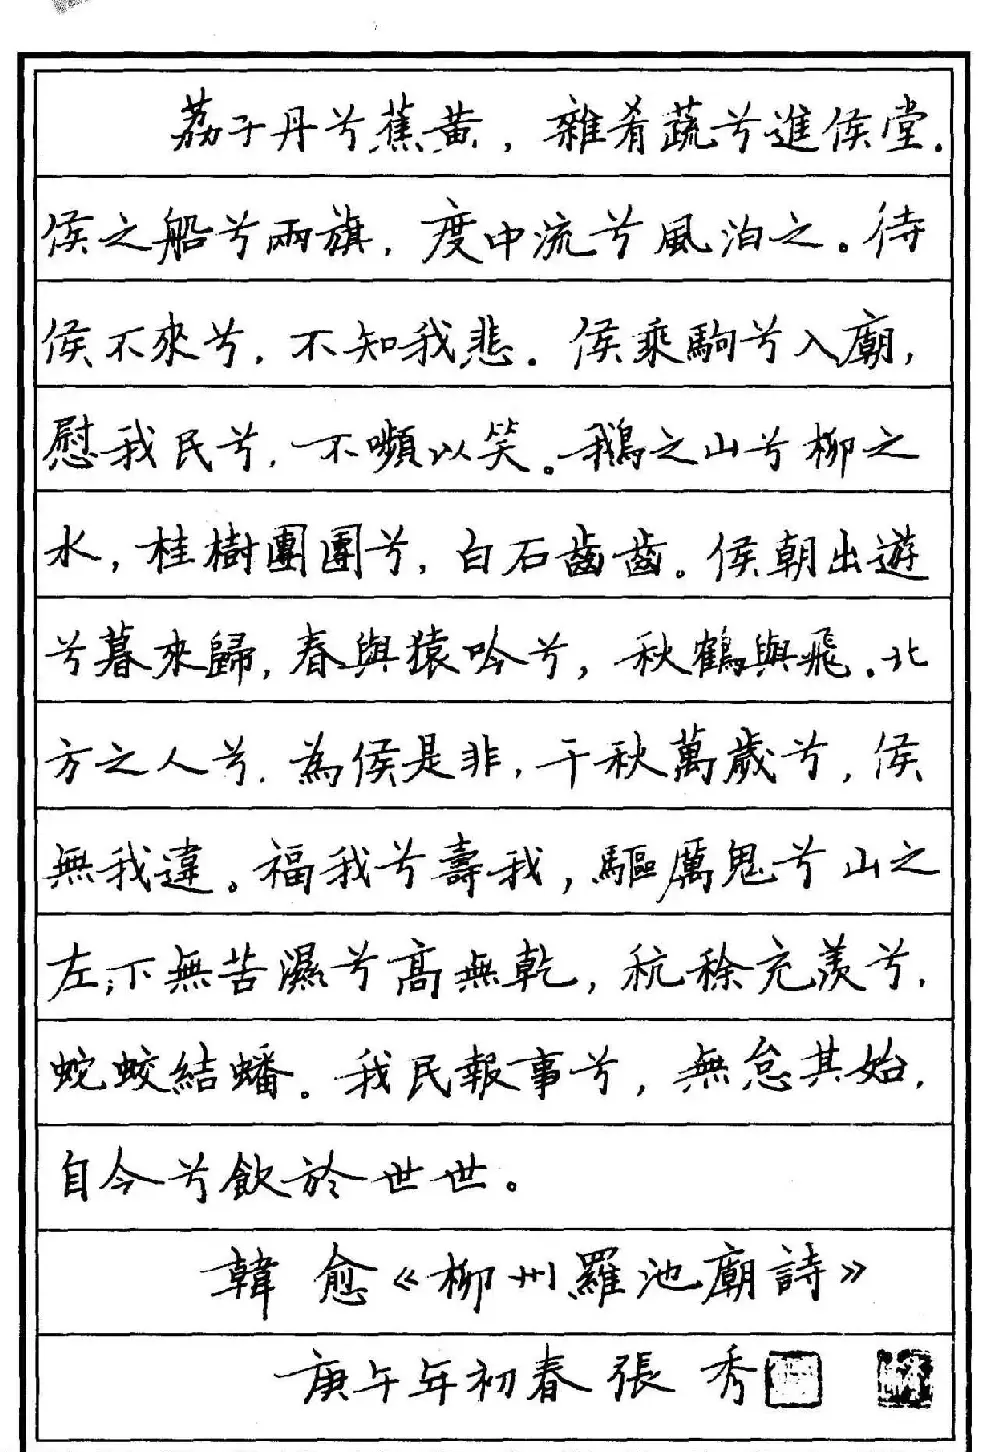 荔子丹兮蕉黄，雜肴蔬兮進侯堂.
侯之船兮兩旗，度中流兮風泊之。待
侯不來兮，不知我悲．侯乘駒兮入廟，
慰我民兮，不嚬以笑。鵝之山兮柳之
水，桂樹團團兮，白石齒齒。侯朝出遊
兮暮來歸，春與猿吟兮，秋鶴與飛．北
方之人兮，為侯是非，千秋萬歲兮，侯
無我違。福我兮壽我，驅厲鬼兮山之
左；下無苦濕兮高無乾，秔稌充羡兮，
蛇蛟結蟠。我民報事兮，無怠其始，
自今兮飲於世世。
韓愈《柳州羅池廟詩》
庚午年初春張秀